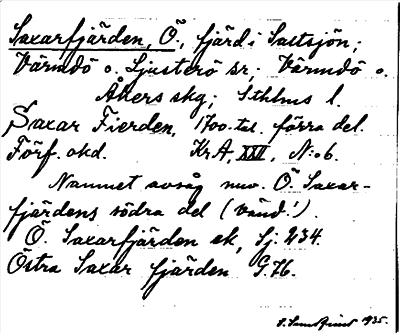 Saxarfjärden, Ö., fjärd i Saltsjön;
Värmdö o. Ljusterö sr; Värmdö o.
Åkers skg; Sthlms l.
Saxar Fierden, 1700-tal. förra del.
Förf. okd. KrA, XXV, N:o 6.
Namnet avsåg nuv. Ö. Saxar-
fjärdens södra del (vänd!).
Ö. Saxarfjärden ek, Sj. 234.
Östra Saxar fjärden G. 76.
1935.